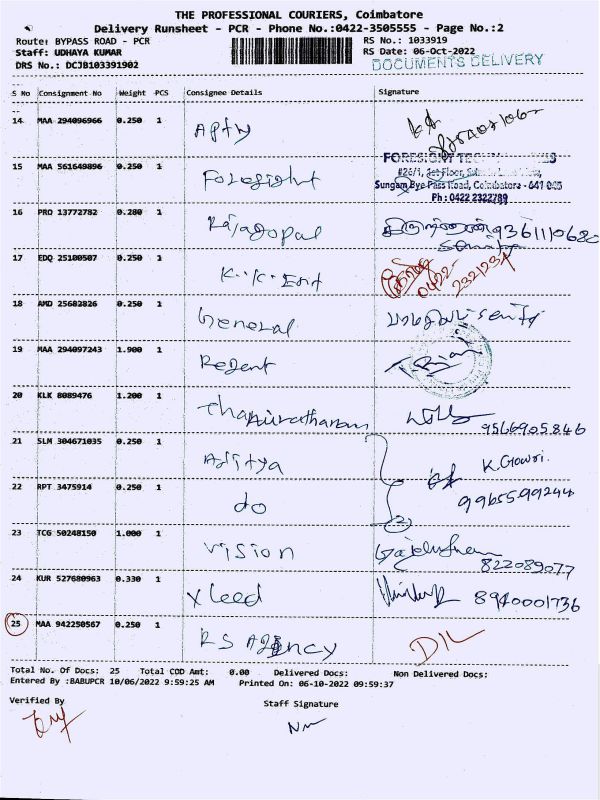 THE PROFESSIONAL COURIERS, Coimbatore
Delivery Runsheet - PCR - Phone No.:0422-3505555 - Page No.:2
Route: BYPASS ROAD - PCR
RS No.: 1033919
Staff: UDHAYA KUMAR
RS Date: 06-Oct-2022
DRS No.: DCJB103391902
DOCUMENTS DELIVERY
S No Consignment No Weight PCS Consignee Details Signature
14 MAA 294096966 0.250 1 Apty
15 MAA 561649896 0.250 1 Foresight
FORESIGHT
#26/1, 1st Floor,
Sungam Bye Pass Road, Coimbatore - 641 045
Ph : 0422 2322789
16 PRO 13772782 0.280 1 Rajagopal 9361110680
17 EDQ 25100507 0.250 1 K.K. Ent 0422-2321237
18 AMD 25682826 0.250 1 General
19 MAA 294097243 1.900 1 Regent
20 KLK 8089476 1.200 1 9566905846
21 SLM 304671035 0.250 1 Aditya K. Gowri.
22 RPT 3475914 0.250 1 do 9965599244
2
23 TCG 50248150 1.000 1 Vision 822089077
24 KUR 527680963 0.330 1 Xleed 8940001736
25 MAA 942250567 0.250 1 RS Agency D/L
Total No. Of Docs: 25 Total COD Amt: 0.00 Delivered Docs: Non Delivered Docs:
Entered By :BABUPCR 10/06/2022 9:59:25 AM Printed On: 06-10-2022 09:59:37
Verified By
Staff Signature